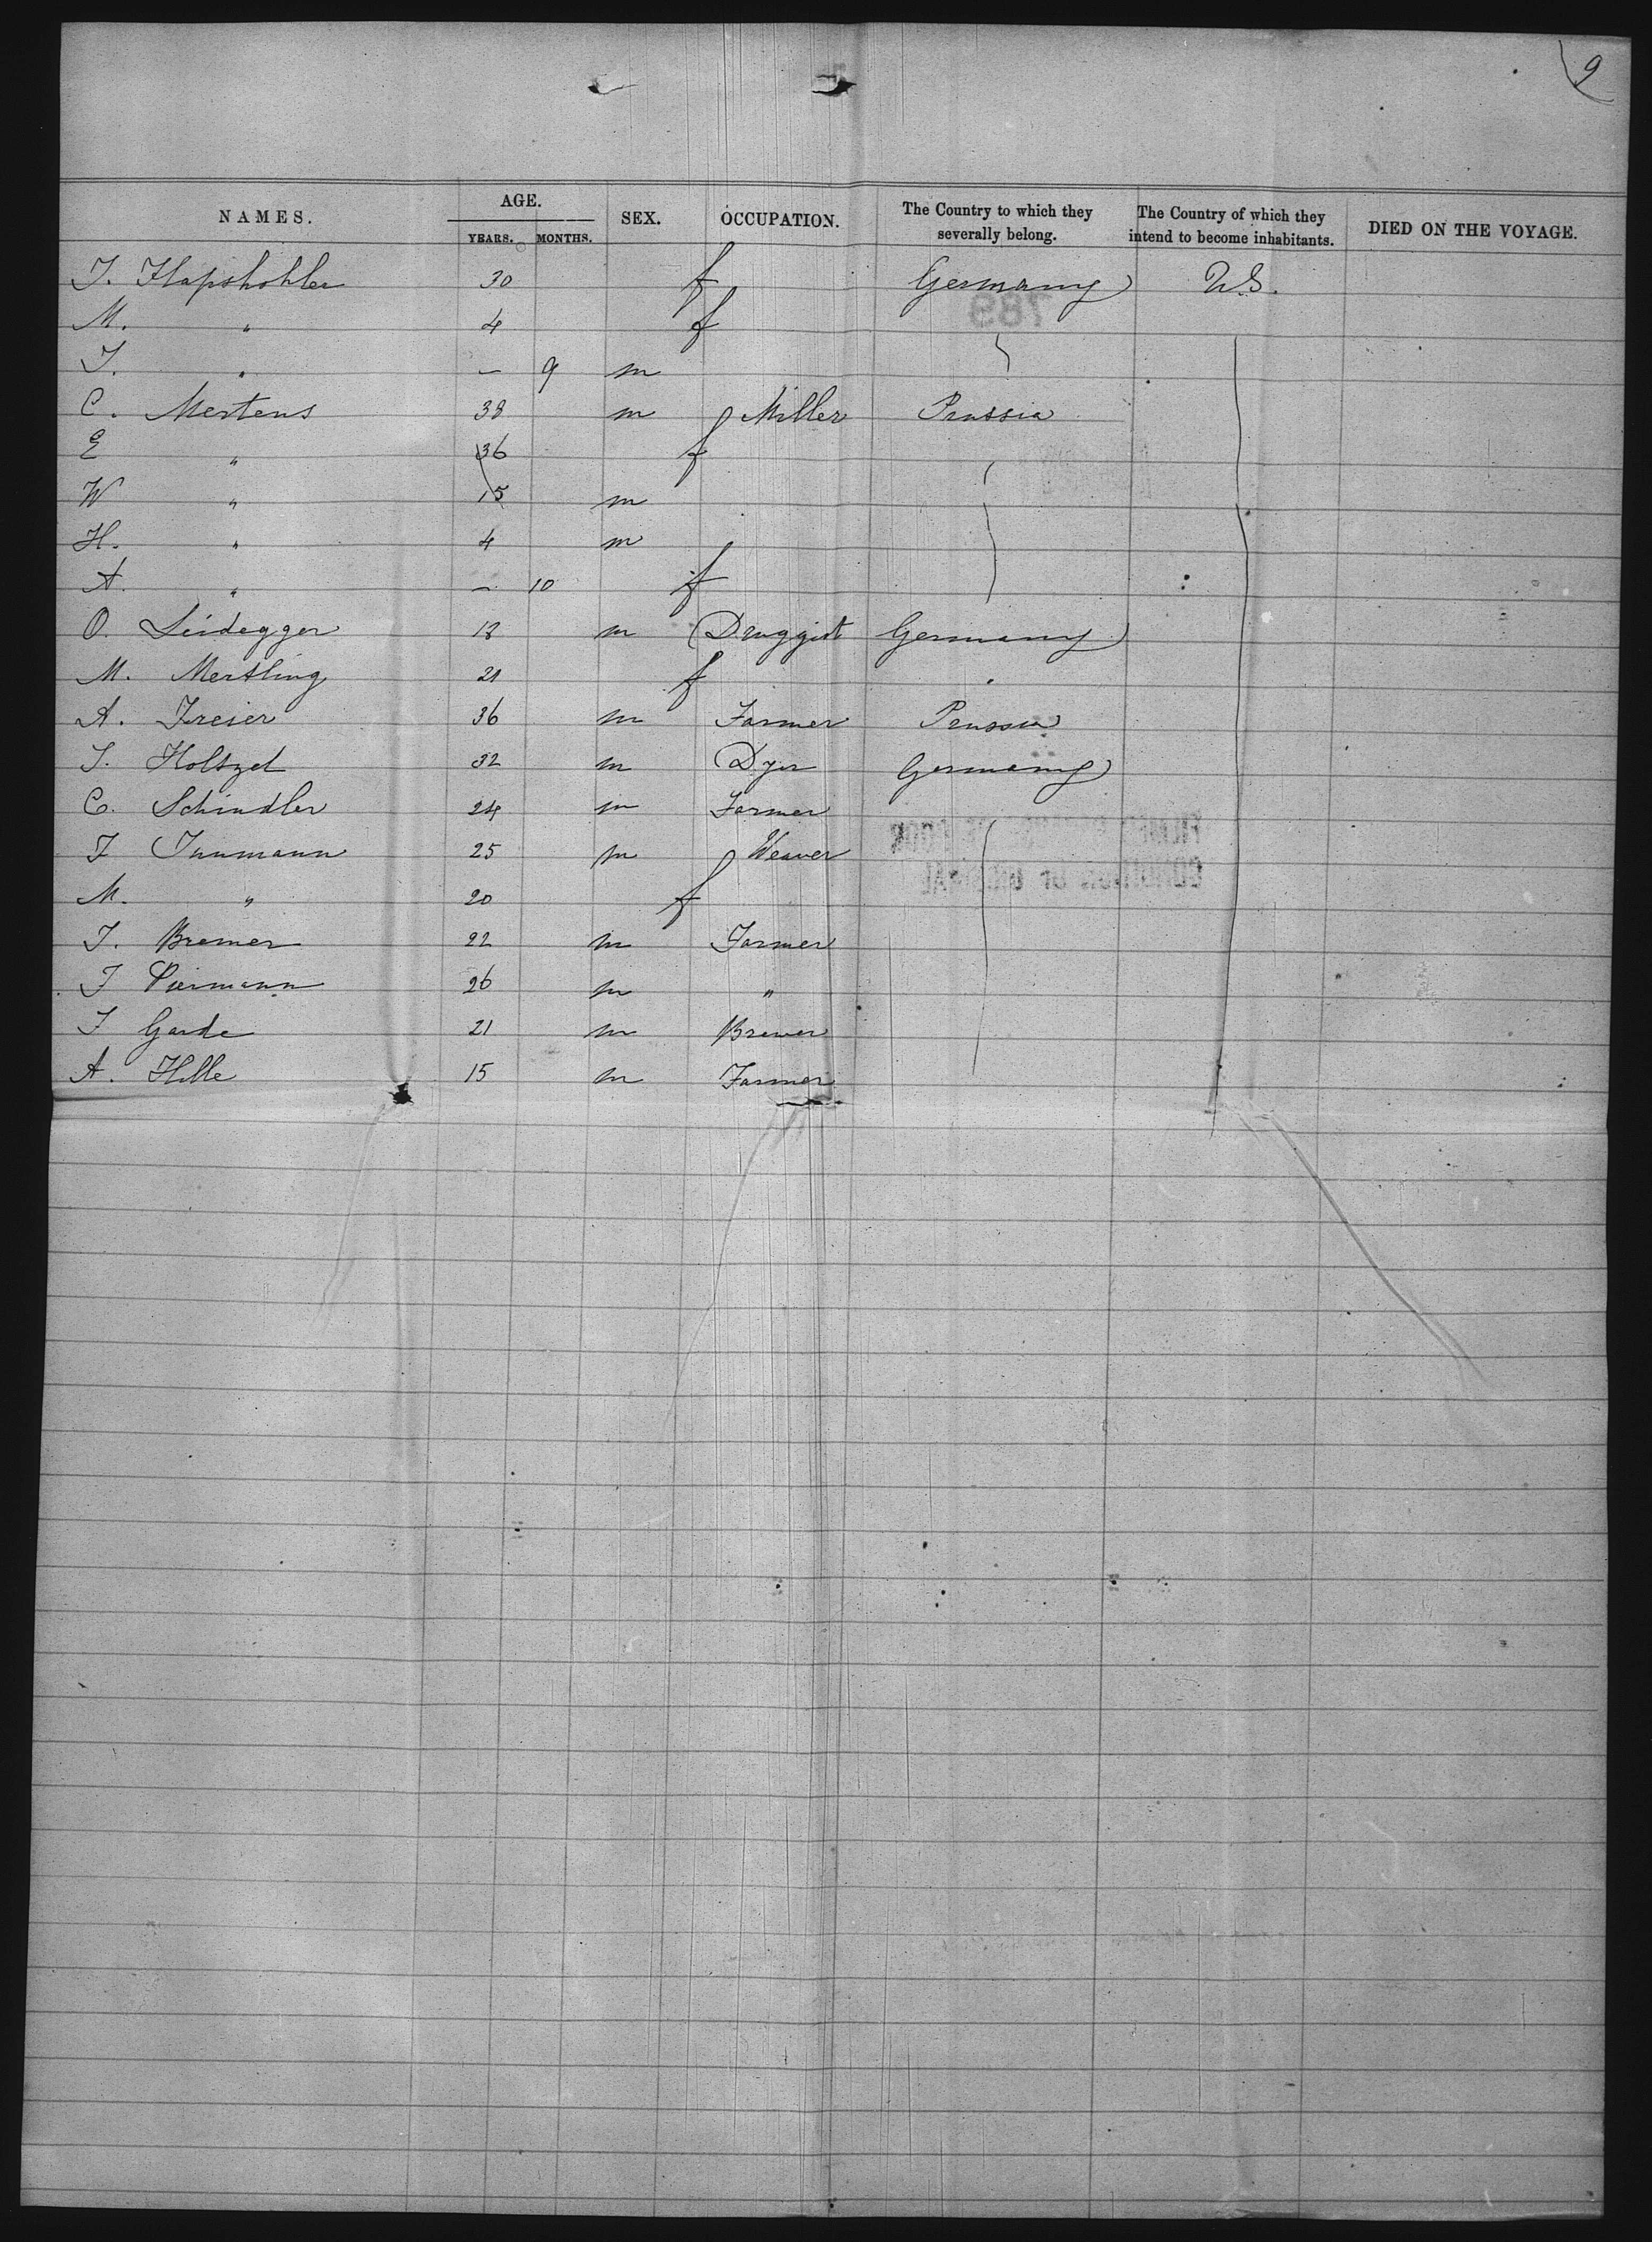 9
NAMES. AGE. SEX. OCCUPATION. The Country to which they severally belong. The Country of which they intend to become inhabitants. DIED ON THE VOYAGE.
YEARS. MONTHS.
J. Hapshohler 30 f Germany U.S.
M. " 4 f
J. " – 9 m
C. Mertens 38 m Miller Prussia
E " 36 f
W " 15 m
H. " 4 m
A. " – 10 f
O. Leidegger 18 m Druggist Germany
M. Mertling 21 f
A. Freier 36 m Farmer Prussia
S. Holtzel 32 m Dyer Germany
C. Schindler 24 m Farmer
F 25 m Weaver
M. " 20 f
J. Bremer 22 m Farmer
F 26 m "
J Garde 21 m Brewer
A. Hille 15 m Farmer